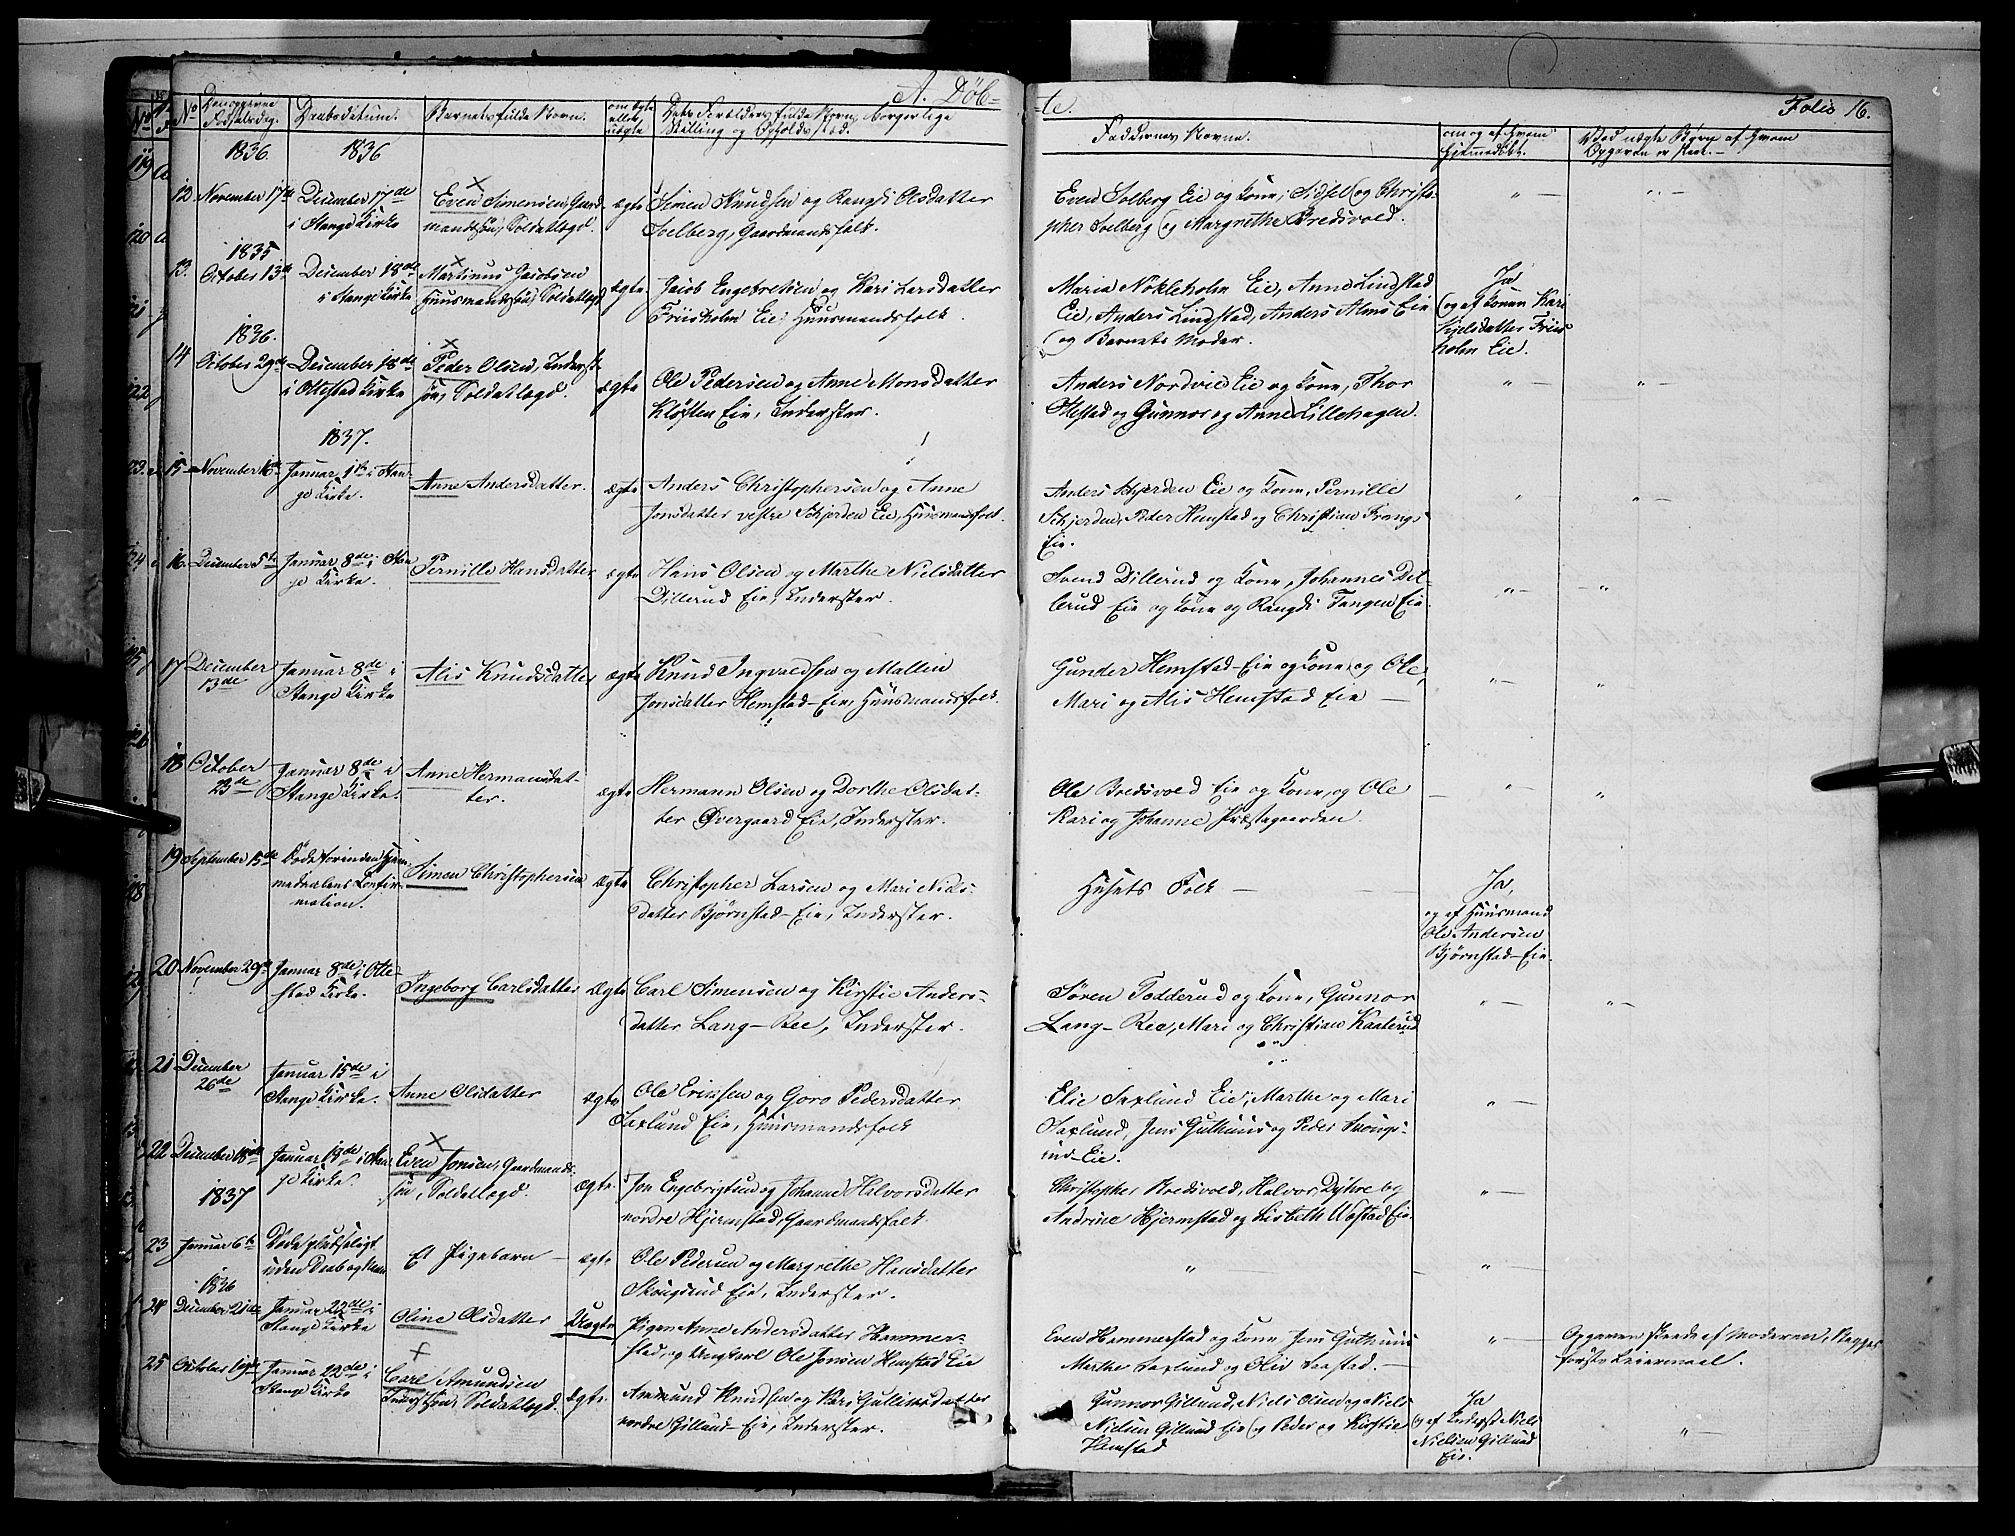 A. Döb-
-te.
Folio 16.
No
Daabsdatum.
Barnets fulde Navn.
om ægte eller uægte
Faddernes Navne.
om og af Hvem Hjemmedøbt.
1836. 1836
12 November 17de December 17de Even Simensen, Gaard- ægte Simen Knudsen og Rangdi Olsdatter
i Stange Kirke mandssøn, Soldatlægd. Solberg, Gaardmandsfolk.
Even Solberg Eie og Kone, Sidsel og Christo-
pher Solberg og Margrethe Bredsvold.
1835
13. October 13de December 18de Martinus Jacobsen ægte Jacob Engebretsen og Kari Larsdatter
i Stange Kirke Huusmandssøn, Soldatlægd Friisholm Eie, Huusmandsfolk.
Maria Nökleholm Eie, Anne Lindstad
Eie, Anders Lindstad, Anders Alms Eie
og Barnets Moder.
Ja
og af Konen Kari
Friis
holm Eie.
1836.
14 October 29de December 18de Peder Olsen, Inderst-
i Ottestad Kirke søn, Soldatlægd. ægte Ole Pedersen og Anne Monsdatter
Kløften Eie, Inderster.
Anders Nordvie Eie og Kone, Thor
og Gunnor og Anne Lillehagen.
1837.
15 November 16de Januar 1ste i Stan-
ge Kirke. Anne Andersdatter. ægte Anders Christophersen og Anne
Jonsdatter vestre Schjerden Eie, Huusmandsfolk.
Anders Schjerden Eie og Kone, Pernille
Schjerden, Peder Hemstad og Christian Frangs
Eie.
16. December 5te Januar 8de i Stan
ge Kirke. Pernille Hansdatter, ægte Hans Olsen og Marthe Nielsdatter
Dillerud Eie, Inderster.
Svend Dillerud og Kone, Johannes Dil-
lerud Eie og Kone og Rangdi Tangen Eie.
17 December Januar 8de i Alis Knudsdatter ægte Knud Ingvaldsen og Mallin
13de Stange Kirke Jonsdatter Hemstad-Eie, Huusmandsfolk.
Gunder Hemstad-Eie og Kone, og Ole,
Mari og Alis Hemstad Eie —
18 October Januar 8de i Anne Hermansdat-
23de Stange Kirke. ter. ægte Hermann Olsen og Dorthe Olsdat-
ter Øvergaard Eie, Inderster.
Ole Bredsvold Eie og Kone, og Ole
Kari og Johanne Præstegaarden.
19 September 15de Døde forinden Hjem-
medaabens Confir-
mation. Simen Christophersen ægte Christopher Larsen og Mari Niels-
datter Bjørnstad-Eie, Inderster.
Husets Folk —
Ja,
og af Huusmand
Ole Andersen
Bjørnstad-Eie.
20 November 29de Januar 8de i Otte-
stad Kirke. Ingeborg Carlsdatter ægte Carl Simensen og Kirstie Anders-
datter Lang-Ree, Inderster.
Søren Todderud og Kone, Gunnor
Lang-Ree, Mari og Christian Kaaterud
21 December Januar 15de i
26de Stange Kirke. Anne Olsdatter ægte Ole Erichsen og Goro Pedersdatter
Saxlund Eie, Huusmandsfolk
Elie Saxlund Eie, Marthe og Mari
Saxlund, Jens Guthuus og Peder Skougs-
rud-Eie.
22 December 18de Januar 19de i Stan
ge Kirke. Even Jonsen, Gaardmands-
søn, Soldatlægd. ægte Jon Engebrigtsen og Johanne Halvorsdatter
nordre Hjermstad, Gaardmandsfolk.
Christopher Bredsvold, Halvor, og
Andrine Hjermstad og Lisbeth Eie.
1837
23 Januar 6te Døde pludseligt
uden Daab og Navn Et Pigebarn — ægte Ole Pedersen og Margrethe Hansdatter
Skougsrud Eie, Inderster.
1836
24 December 21de Januar 22de i
Stange Kirke Oline Olsdatter Uægte Pigen Anne Andersdatter Hammer-
stad, og Ungkarl Ole Jonsen Hemstad Eie
Even Hammerstad og Kone, Jens Guthuus
Marthe Saxlund og Oliv Saastad. —
Opgaven skeede af Moderen, Begges
første Leiermaal.
25 October 19de Januar 22de i
Stange Kirke Carl Amundsen
Soldatlægd. ægte Ammund Knudsen og Kari Gulliksdatter
nordre Gillund-Eie, Inderster.
Gunnor Gillund, Niels Olsen og Niels
Nielsen Gillund Eie og Peder og Kirstie
Hemstad
Ja
og af Inderst Niels
Nielsen Gillund
Eie.